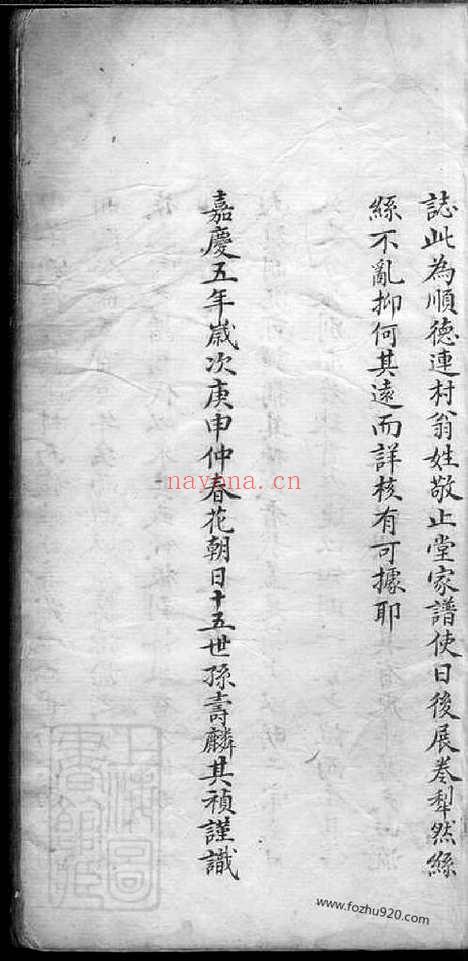 誌此為順德連村翁姓敬止堂家譜使日後展卷犁然絲
絲不亂抑何其遠而詳核有可據耶
嘉慶五年歲次庚申仲春花朝日十五世孫壽麟其禎謹識
nayona.cn
www.fozhu920.com